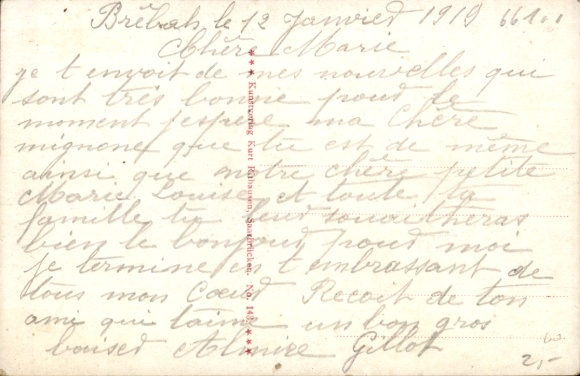 Brébach, le 12 Janvied 1919
Chère Marie
je t envoit de mes nouvelles qui
sont très bonne poud le
moment j'espère ma Chère
mignone que tu est de même
ainsi que notre chère petite
Marie Louise et toute ta
famille tu leud souaitheras
bien le bonjoud poud moi
je termine en t embrassant de
tous mon Coeud Recoit de ton
ami qui t'aime un bon gros
baised Almire Gillot
2,-
*** Kunstverlag Kurt Rathausen, Saarbrücken. No. 143. ***